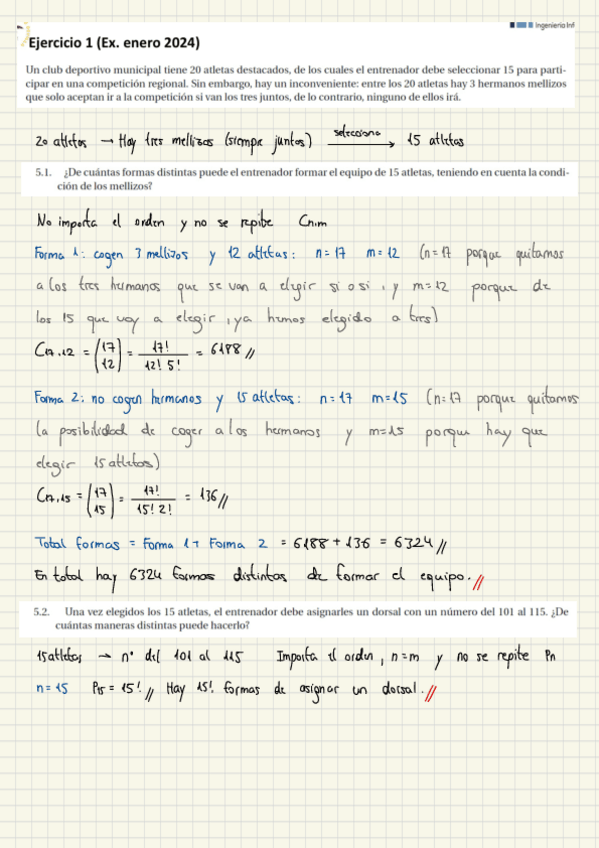 Ingeniería Inf
Ejercicio 1 (Ex. enero 2024)
Un club deportivo municipal tiene 20 atletas destacados, de los cuales el entrenador debe seleccionar 15 para parti-
cipar en una competición regional. Sin embargo, hay un inconveniente: entre los 20 atletas hay 3 hermanos mellizos
que solo aceptan ir a la competición si van los tres juntos, de lo contrario, ninguno de ellos irá.
20 atletas → Hay tres mellizos (siempre juntos) selecciona → 15 atletas
5.1. ¿De cuántas formas distintas puede el entrenador formar el equipo de 15 atletas, teniendo en cuenta la condi-
ción de los mellizos?
No importa el orden y no se repite Cn,m
Forma 1: cogen 3 mellizos y 12 atletas: n=17 m=12 (n=17 porque quitamos
a los tres humanos que se van a elegir si o si, y m=12 porque de
los 15 que voy a elegir, ya hemos elegido a tres)
C17,12 = (17 12) = 17! / 12! 5! = 6188 //
Forma 2: no cogen hermanos y 15 atletas: n=17 m=15 (n=17 porque quitamos
la posibilidad de coger a los hermanos y m=15 porque hay que
elegir 15 atletas)
C17,15 = (17 15) = 17! / 15! 2! = 136 //
Total formas = Forma 1 + Forma 2 = 6188 + 136 = 6324 //
En total hay 6324 formas distintas de formar el equipo. //
5.2. Una vez elegidos los 15 atletas, el entrenador debe asignarles un dorsal con un número del 101 al 115. ¿De
cuántas maneras distintas puede hacerlo?
15 atletas → nº del 101 al 115 Importa el orden, n=m y no se repite Pn
n=15 P15 = 15! // Hay 15! formas de asignar un dorsal. //